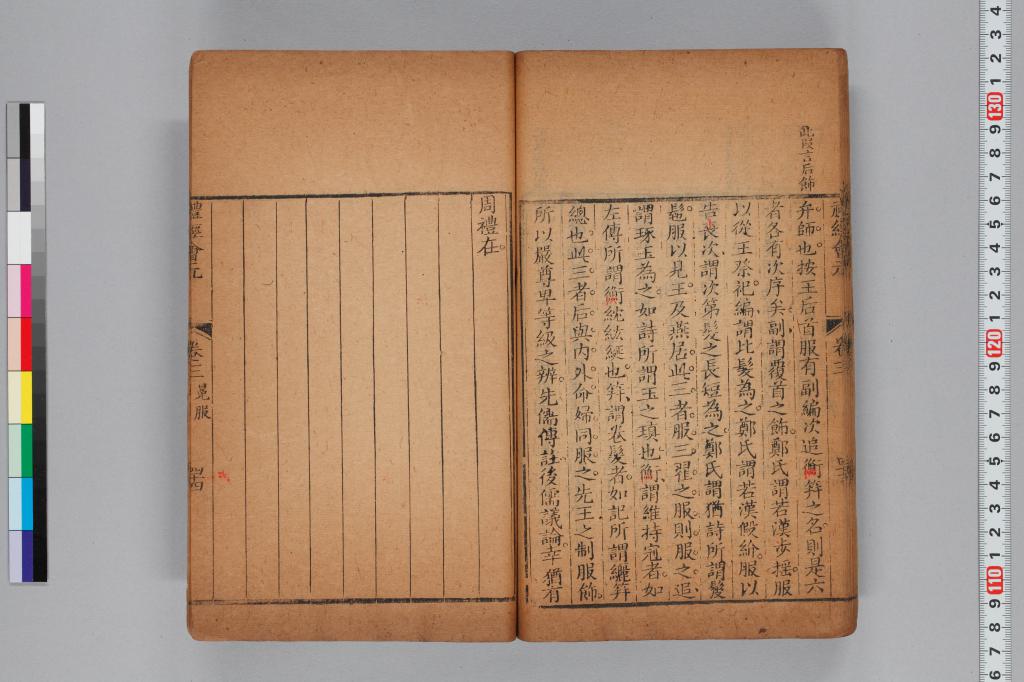 此叚言后飾
弁師也按王后首服有副編次追衡笄之名則是六
者各有次序矣副謂覆首之飾鄭氏謂若漢步摇服
以從王祭祀編謂比髪為之鄭氏謂若漢假紒服以
告丧次謂次第髪之長短為之鄭氏謂猶詩所謂髲
髢服以見王及燕居此三者服三翟之服則服之追
謂琢玉為之如詩所謂玉之瑱也衡謂維持冠者如
左傳所謂衡紞紘綖也笄謂卷髪者如記所謂纚笄
總也此三者后與内外命婦同服之先王之制服飾
所以嚴尊卑等級之辨先儒傳註後儒議論幸猶有
周禮在
禮經會元
卷三
冕服
四十四